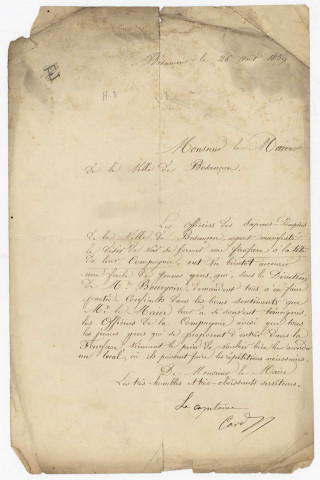 Besançon le 26 août 1859
H. 3
Monsieur le Maire
de la Ville de Besançon.
Les Officiers des Sapeurs-Pompiers
de la Ville de Besançon ayant manifesté
le désir de voir se former une fanfare à la tête
de leur Compagnie, ont vu bientôt accourir
une foule de jeunes gens, qui, sous la Direction
de Mr. Bourgoin, demandent tous à en faire
partie. Confiants dans les bons sentiments que
Mr. le Maire leur a si souvent témoignés,
les Officiers de la Compagnie ainsi que tous
les jeunes gens qui se proposent d'entrer dans la
Fanfare, viennent le prier de vouloir bien leur accorder
un local, où ils puissent faire les répétitions nécessaires.
De Monsieur le Maire
Les très-humbles et très-obéissants serviteurs.
Le capitaine